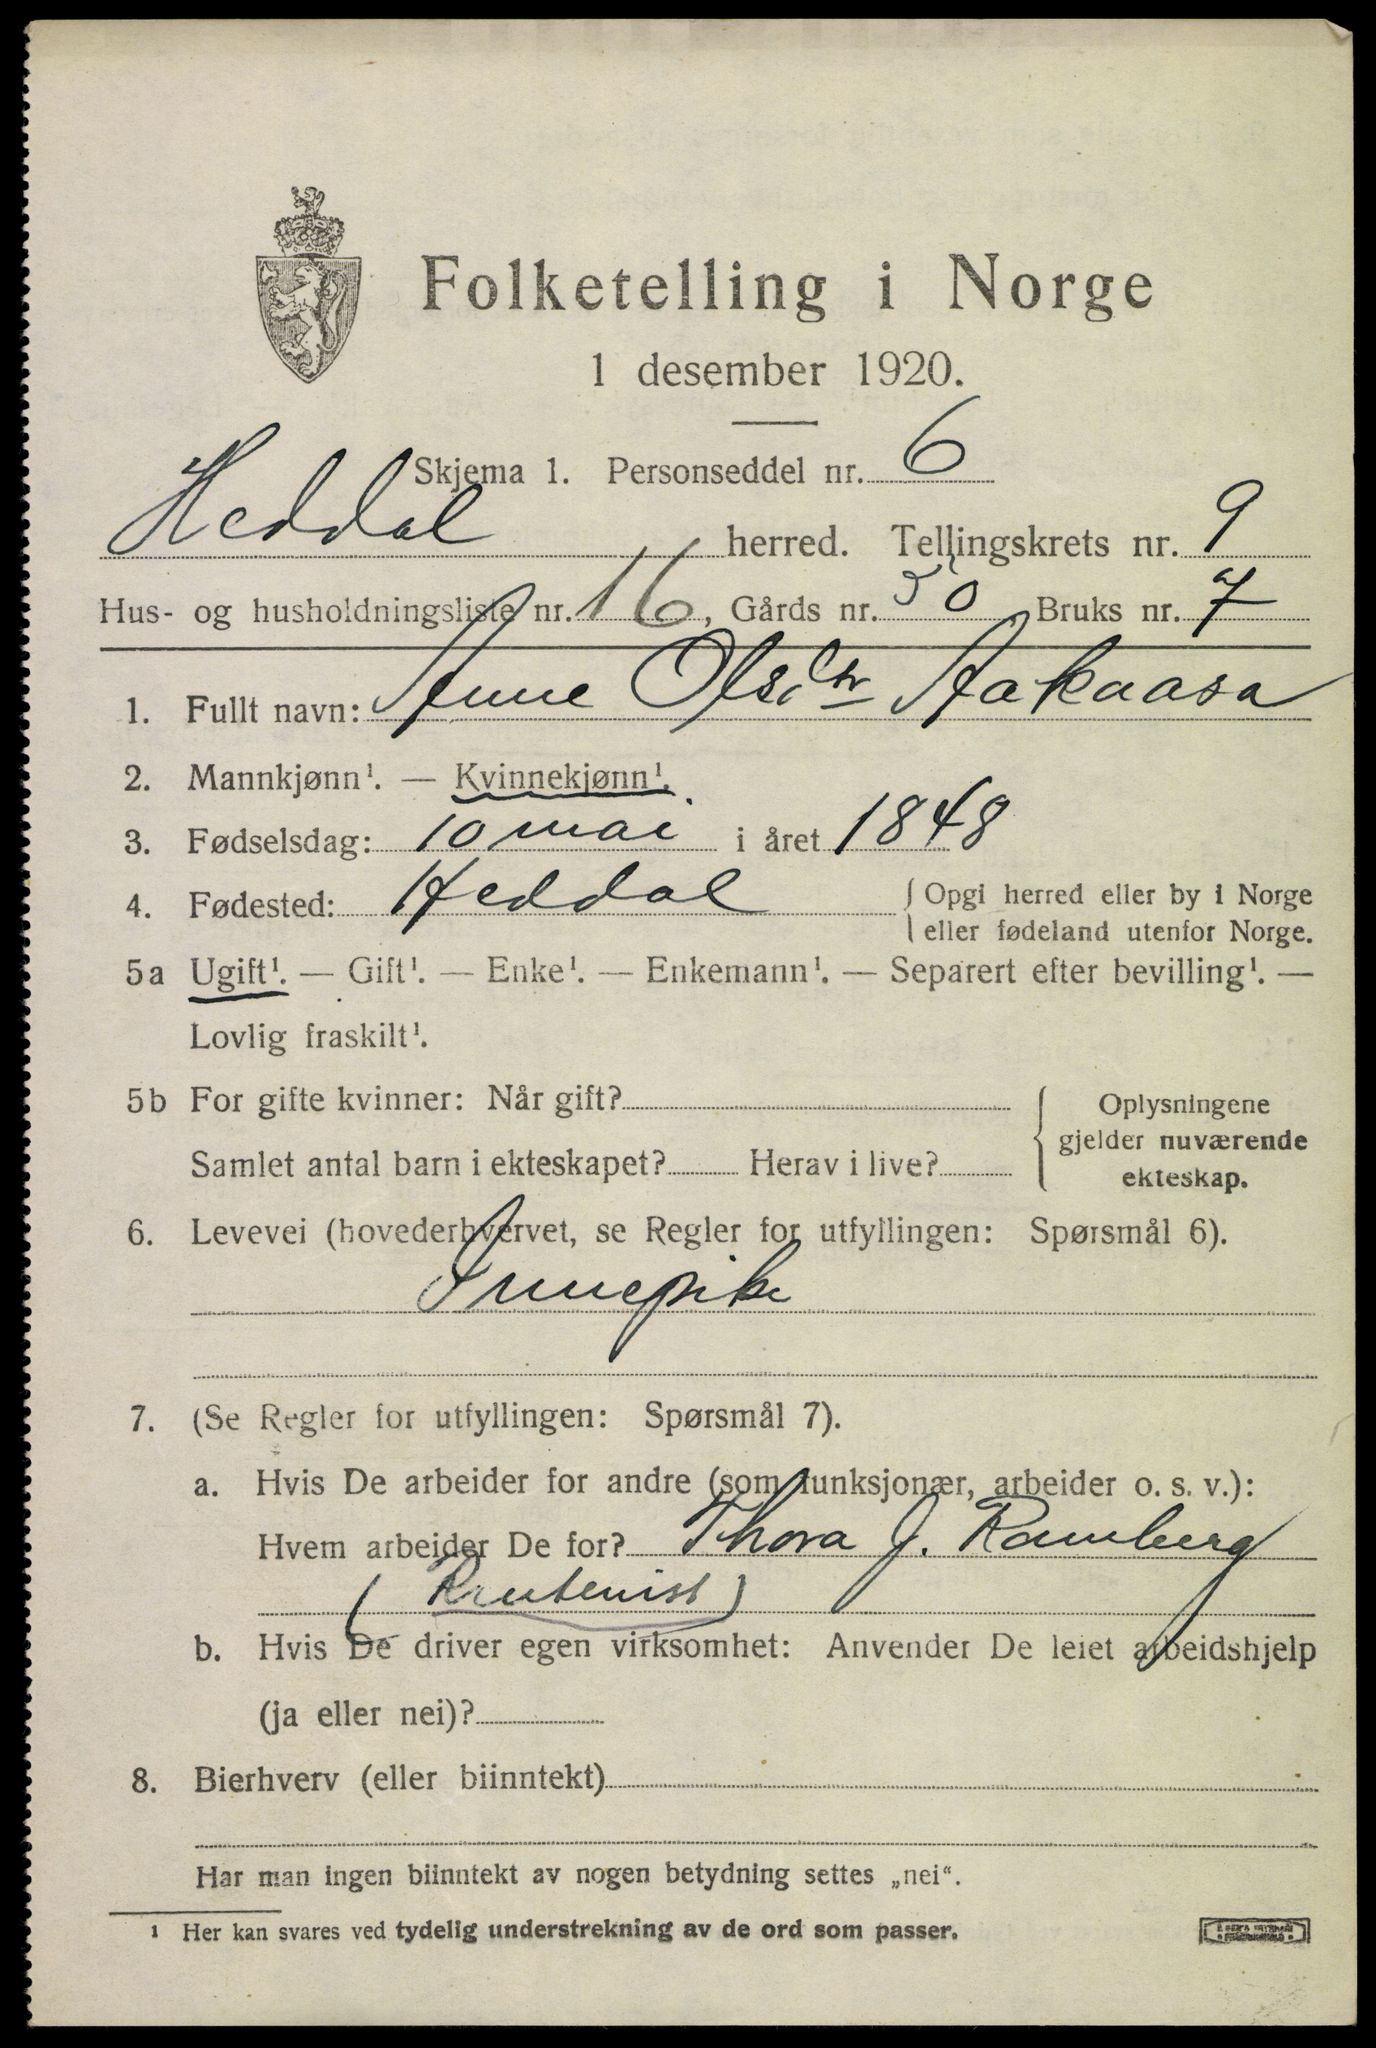 Folketelling i Norge
1 desember 1920.
Skjema 1. Personseddel nr. 6
Heddal herred. Tellingskrets nr. 9
Hus- og husholdningsliste nr. 16, Gårds nr. 50 Bruks nr. 7
1. Fullt navn: Anne Olsdtr Aakaasa
2. Mannkjønn¹. — Kvinnekjønn¹.
3. Fødselsdag: 10 mai i året 1848
4. Fødested: Heddal { Opgi herred eller by i Norge
eller fødeland utenfor Norge.
5a Ugift¹. — Gift¹. — Enke¹. — Enkemann¹. — Separert efter bevilling¹. —
Lovlig fraskilt¹.
5b For gifte kvinner: Når gift?
Samlet antal barn i ekteskapet? Herav i live?
Oplysningene
gjelder nuværende
ekteskap.
6. Levevei (hovederhvervet, se Regler for utfyllingen: Spørsmål 6).
Innepike
7. (Se Regler for utfyllingen: Spørsmål 7).
a. Hvis De arbeider for andre (som funksjonær, arbeider o. s. v.):
Hvem arbeider De for? Thora J. Ramberg
(Rentenist)
b. Hvis De driver egen virksomhet: Anvender De leiet arbeidshjelp
(ja eller nei)?
8. Bierhverv (eller biinntekt)
Har man ingen biinntekt av nogen betydning settes „nei“.
¹ Her kan svares ved tydelig understrekning av de ord som passer.